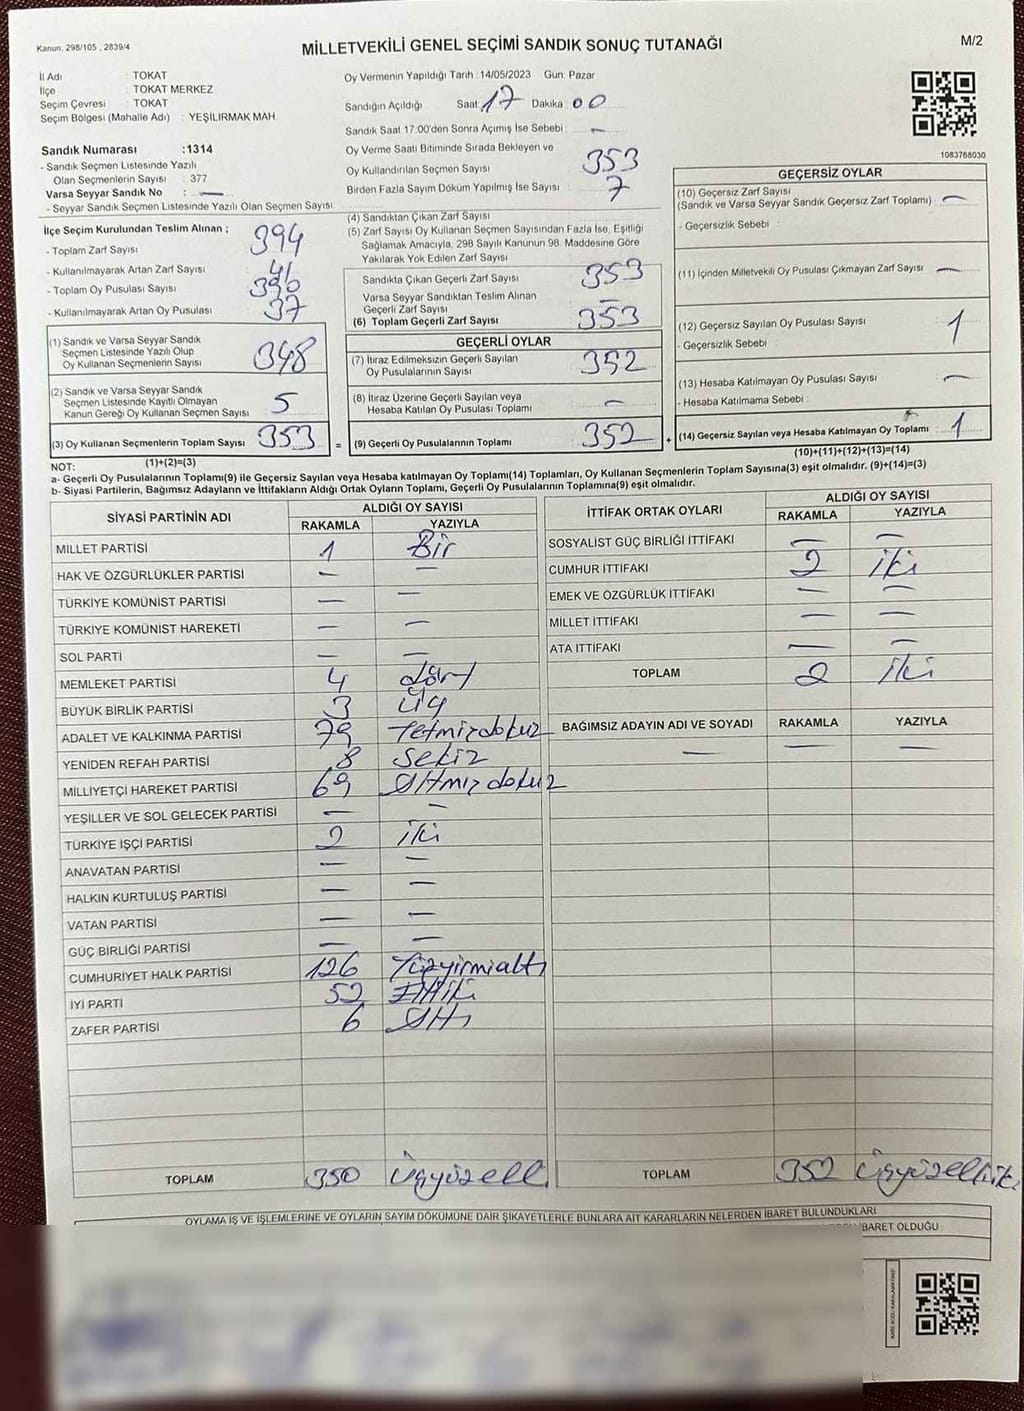 Kanun. 298/105 , 2839/4
MİLLETVEKİLİ GENEL SEÇİMİ SANDIK SONUÇ TUTANAĞI
M/2
İl Adı : TOKAT
İlçe : TOKAT MERKEZ
Seçim Çevresi : TOKAT
Seçim Bölgesi (Mahalle Adı) : YEŞİLIRMAK MAH.
Sandık Numarası :1314
- Sandık Seçmen Listesinde Yazılı
Olan Seçmenlerin Sayısı : 377
Varsa Seyyar Sandık No : —
- Seyyar Sandık Seçmen Listesinde Yazılı Olan Seçmen Sayısı:
İlçe Seçim Kurulundan Teslim Alınan ;
- Toplam Zarf Sayısı 394
- Kullanılmayarak Artan Zarf Sayısı 41
- Toplam Oy Pusulası Sayısı 390
- Kullanılmayarak Artan Oy Pusulası 37
(1) Sandık ve Varsa Seyyar Sandık
Seçmen Listesinde Yazılı Olup
Oy Kullanan Seçmenlerin Sayısı 348
(2) Sandık ve Varsa Seyyar Sandık
Seçmen Listesinde Kayıtlı Olmayan
Kanun Gereği Oy Kullanan Seçmen Sayısı 5
(3) Oy Kullanan Seçmenlerin Toplam Sayısı 353
(1)+(2)=(3)
Oy Vermenin Yapıldığı Tarih :14/05/2023 Gün: Pazar
Sandığın Açıldığı Saat 17 Dakika : 00
Sandık Saat 17:00'den Sonra Açımış İse Sebebi : —
Oy Verme Saati Bitiminde Sırada Bekleyen ve
Oy Kullandırılan Seçmen Sayısı 353
Birden Fazla Sayım Döküm Yapılmış İse Sayısı 7
(4) Sandıktan Çıkan Zarf Sayısı
(5) Zarf Sayısı Oy Kullanan Seçmen Sayısından Fazla İse, Eşitliği
Sağlamak Amacıyla, 298 Sayılı Kanunun 98. Maddesine Göre
Yakılarak Yok Edilen Zarf Sayısı
Sandıkta Çıkan Geçerli Zarf Sayısı 353
Varsa Seyyar Sandıktan Teslim Alınan
Geçerli Zarf Sayısı —
(6) Toplam Geçerli Zarf Sayısı 353
GEÇERLİ OYLAR
(7) İtiraz Edilmeksizin Geçerli Sayılan
Oy Pusulalarının Sayısı 352
(8) İtiraz Üzerine Geçerli Sayılan veya
Hesaba Katılan Oy Pusulası Toplamı —
= (9) Geçerli Oy Pusulalarının Toplamı 352 +
1083768030
GEÇERSİZ OYLAR
(10) Geçersiz Zarf Sayısı
(Sandık ve Varsa Seyyar Sandık Geçersiz Zarf Toplamı) : —
- Geçersizlik Sebebi :
(11) İçinden Milletvekili Oy Pusulası Çıkmayan Zarf Sayısı —
(12) Geçersiz Sayılan Oy Pusulası Sayısı 1
- Geçersizlik Sebebi :
(13) Hesaba Katılmayan Oy Pusulası Sayısı —
- Hesaba Katılmama Sebebi :
(14) Geçersiz Sayılan veya Hesaba Katılmayan Oy Toplamı : 1
(10)+(11)+(12)+(13)=(14)
NOT:
a- Geçerli Oy Pusulalarının Toplamı(9) ile Geçersiz Sayılan veya Hesaba katılmayan Oy Toplamı(14) Toplamları, Oy Kullanan Seçmenlerin Toplam Sayısına(3) eşit olmalıdır. (9)+(14)=(3)
b- Siyasi Partilerin, Bağımsız Adayların ve İttifakların Aldığı Ortak Oyların Toplamı, Geçerli Oy Pusulalarının Toplamına(9) eşit olmalıdır.
SİYASİ PARTİNİN ADI ALDIĞI OY SAYISI
RAKAMLA YAZIYLA
MİLLET PARTİSİ 1 Bir
HAK VE ÖZGÜRLÜKLER PARTİSİ — —
TÜRKİYE KOMÜNİST PARTİSİ — —
TÜRKİYE KOMÜNİST HAREKETİ — —
SOL PARTİ — —
MEMLEKET PARTİSİ 4 dört
BÜYÜK BİRLİK PARTİSİ 3 üç
ADALET VE KALKINMA PARTİSİ 79 Yetmişdokuz
YENİDEN REFAH PARTİSİ 8 Sekiz
MİLLİYETÇİ HAREKET PARTİSİ 69 Altmışdokuz
YEŞİLLER VE SOL GELECEK PARTİSİ — —
TÜRKİYE İŞÇİ PARTİSİ 2 iki
ANAVATAN PARTİSİ — —
HALKIN KURTULUŞ PARTİSİ — —
VATAN PARTİSİ — —
GÜÇ BİRLİĞİ PARTİSİ — —
CUMHURİYET HALK PARTİSİ 126 Yüzyirmialtı
İYİ PARTİ 52 Elliiki
ZAFER PARTİSİ 6 Altı
TOPLAM 350 Üçyüzelli
İTTİFAK ORTAK OYLARI ALDIĞI OY SAYISI
RAKAMLA YAZIYLA
SOSYALİST GÜÇ BİRLİĞİ İTTİFAKI — —
CUMHUR İTTİFAKI 2 iki
EMEK VE ÖZGÜRLÜK İTTİFAKI — —
MİLLET İTTİFAKI — —
ATA İTTİFAKI — —
TOPLAM 2 iki
BAĞIMSIZ ADAYIN ADI VE SOYADI RAKAMLA YAZIYLA
— — —
TOPLAM 352 Üçyüzelliiki
OYLAMA İŞ VE İŞLEMLERİNE VE OYLARIN SAYIM DÖKÜMÜNE DAİR ŞİKAYETLERLE BUNLARA AİT KARARLARIN NELERDEN İBARET BULUNDUKLARI
İBARET OLDUĞU :